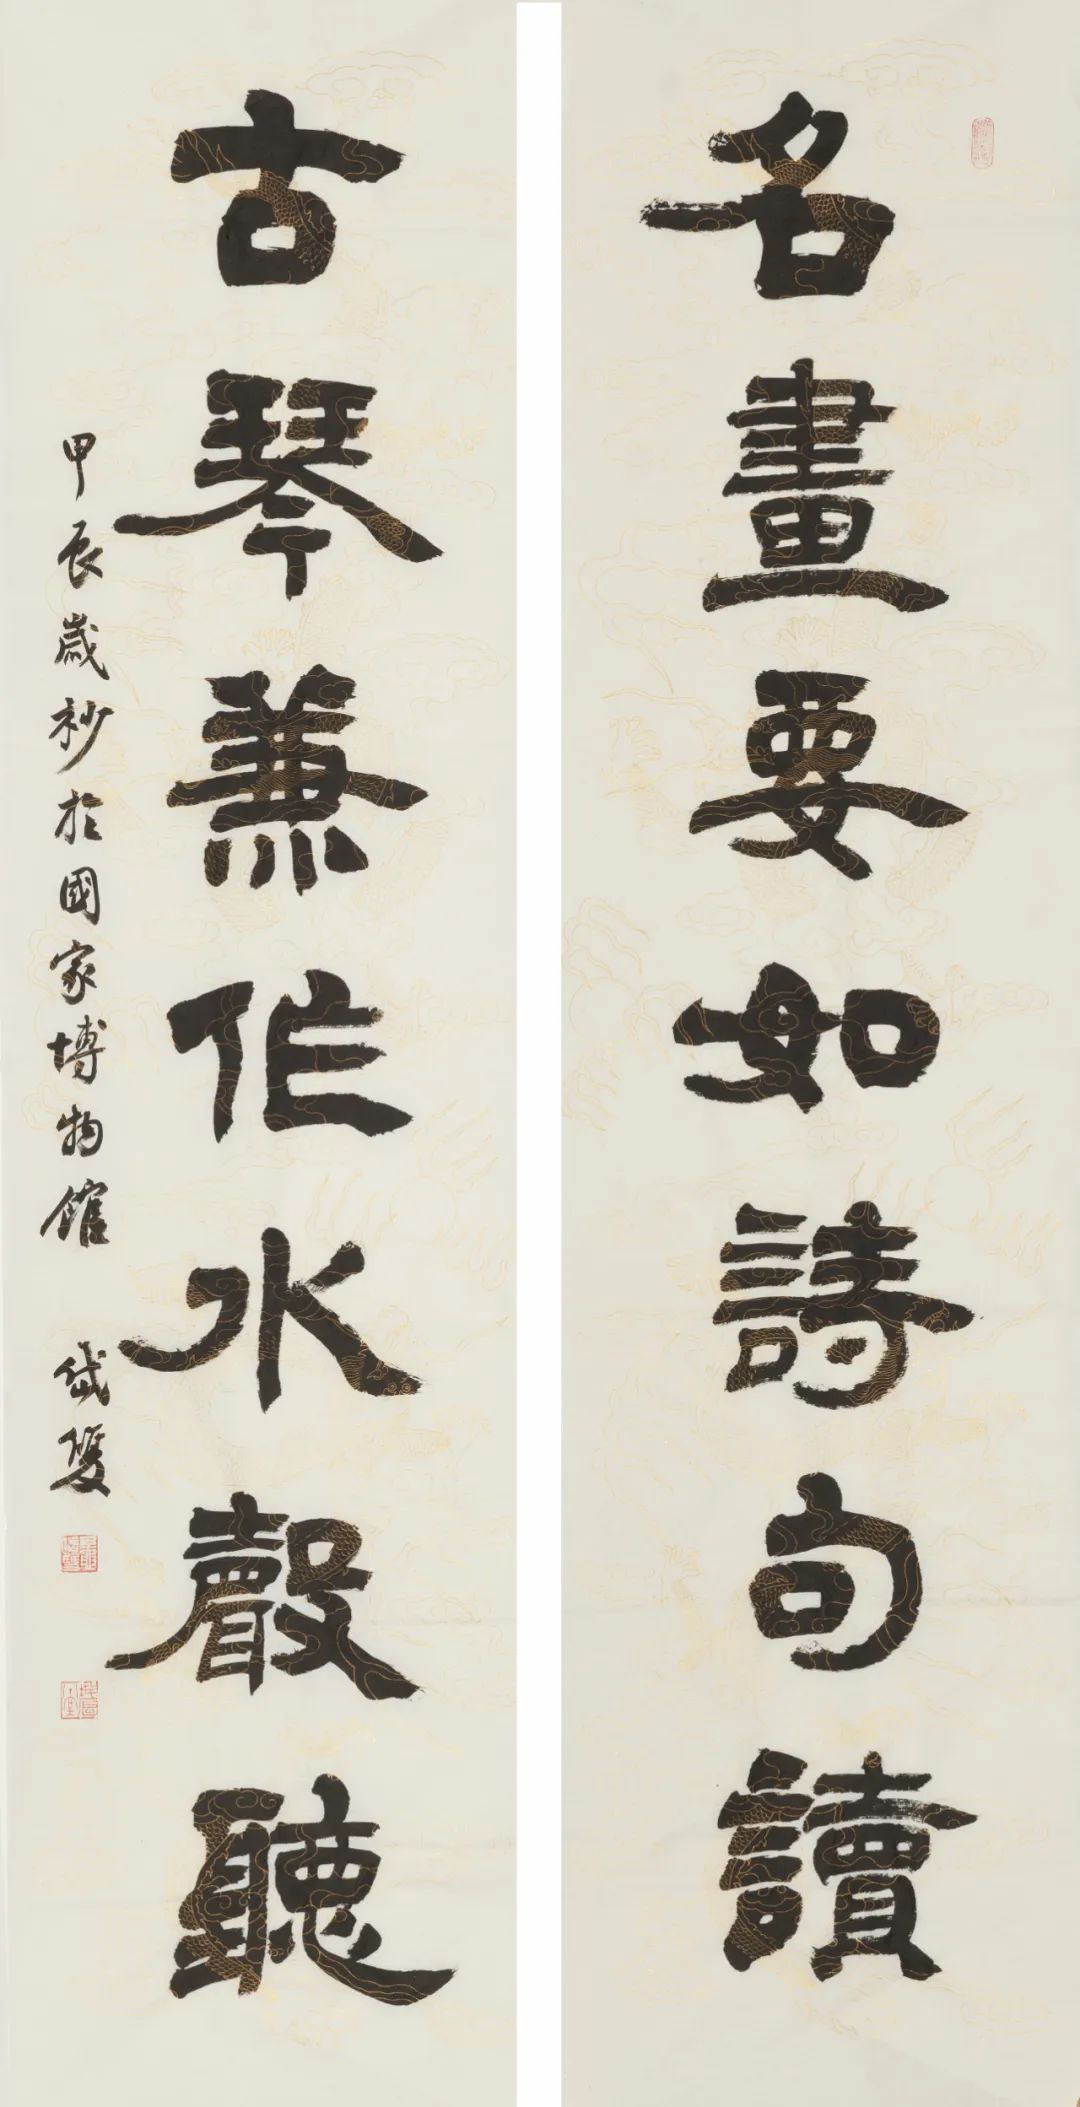 名畫要如詩句讀
古琴兼作水聲聽
甲辰歲杪於國家博物館 岱雙